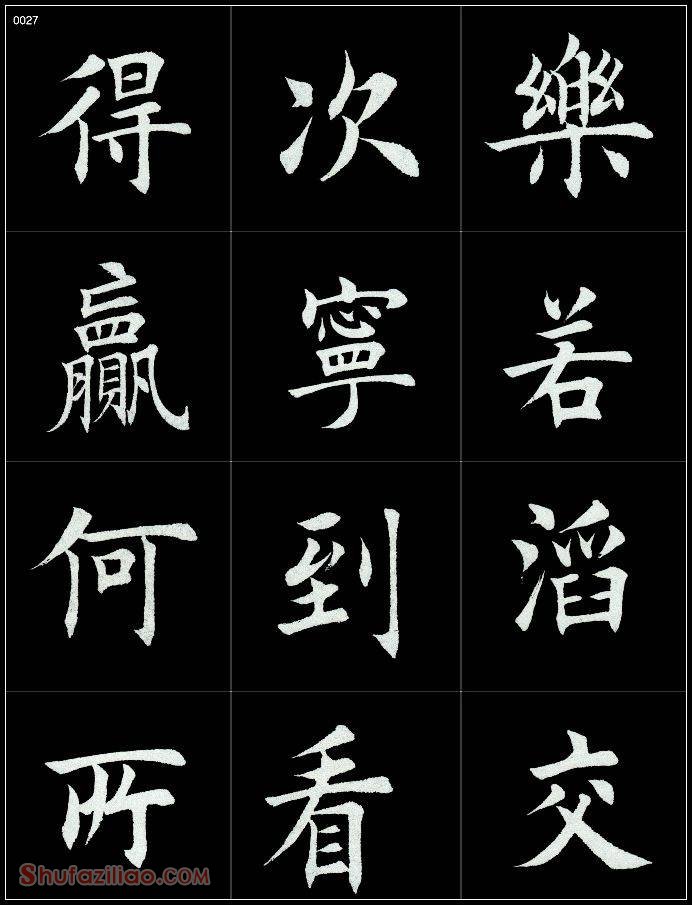 0027
樂若滔交
次寧到看
得贏何所
Shufaziliao.com